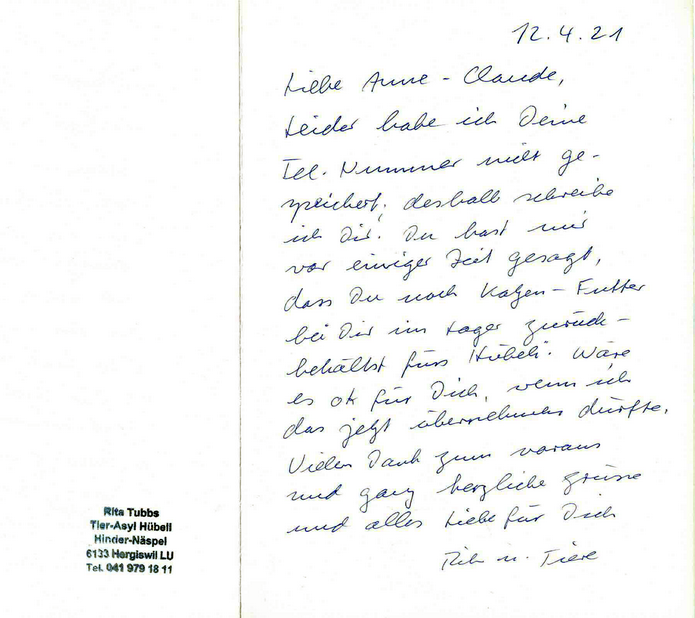 12.4.21
Liebe Anne-Claude,
Leider habe ich Deine
Tel. Nummer nicht ge-
speichert, deshalb schreibe
ich Dir. Du hast mir
vor einiger Zeit gesagt,
dass Du noch Katzen-Futter
bei Dir im Lager zurück-
behältst fürs Hübeli. Wäre
es ok für Dich, wenn ich
das jetzt übernehmen dürfte.
Vielen Dank zum voraus
und ganz herzliche Grüsse
und alles Liebe für Dich
Rita u. Tiere
Rita Tubbs
Tier-Asyl Hübeli
Hinder-Näspel
6133 Hergiswil LU
Tel. 041 979 18 11